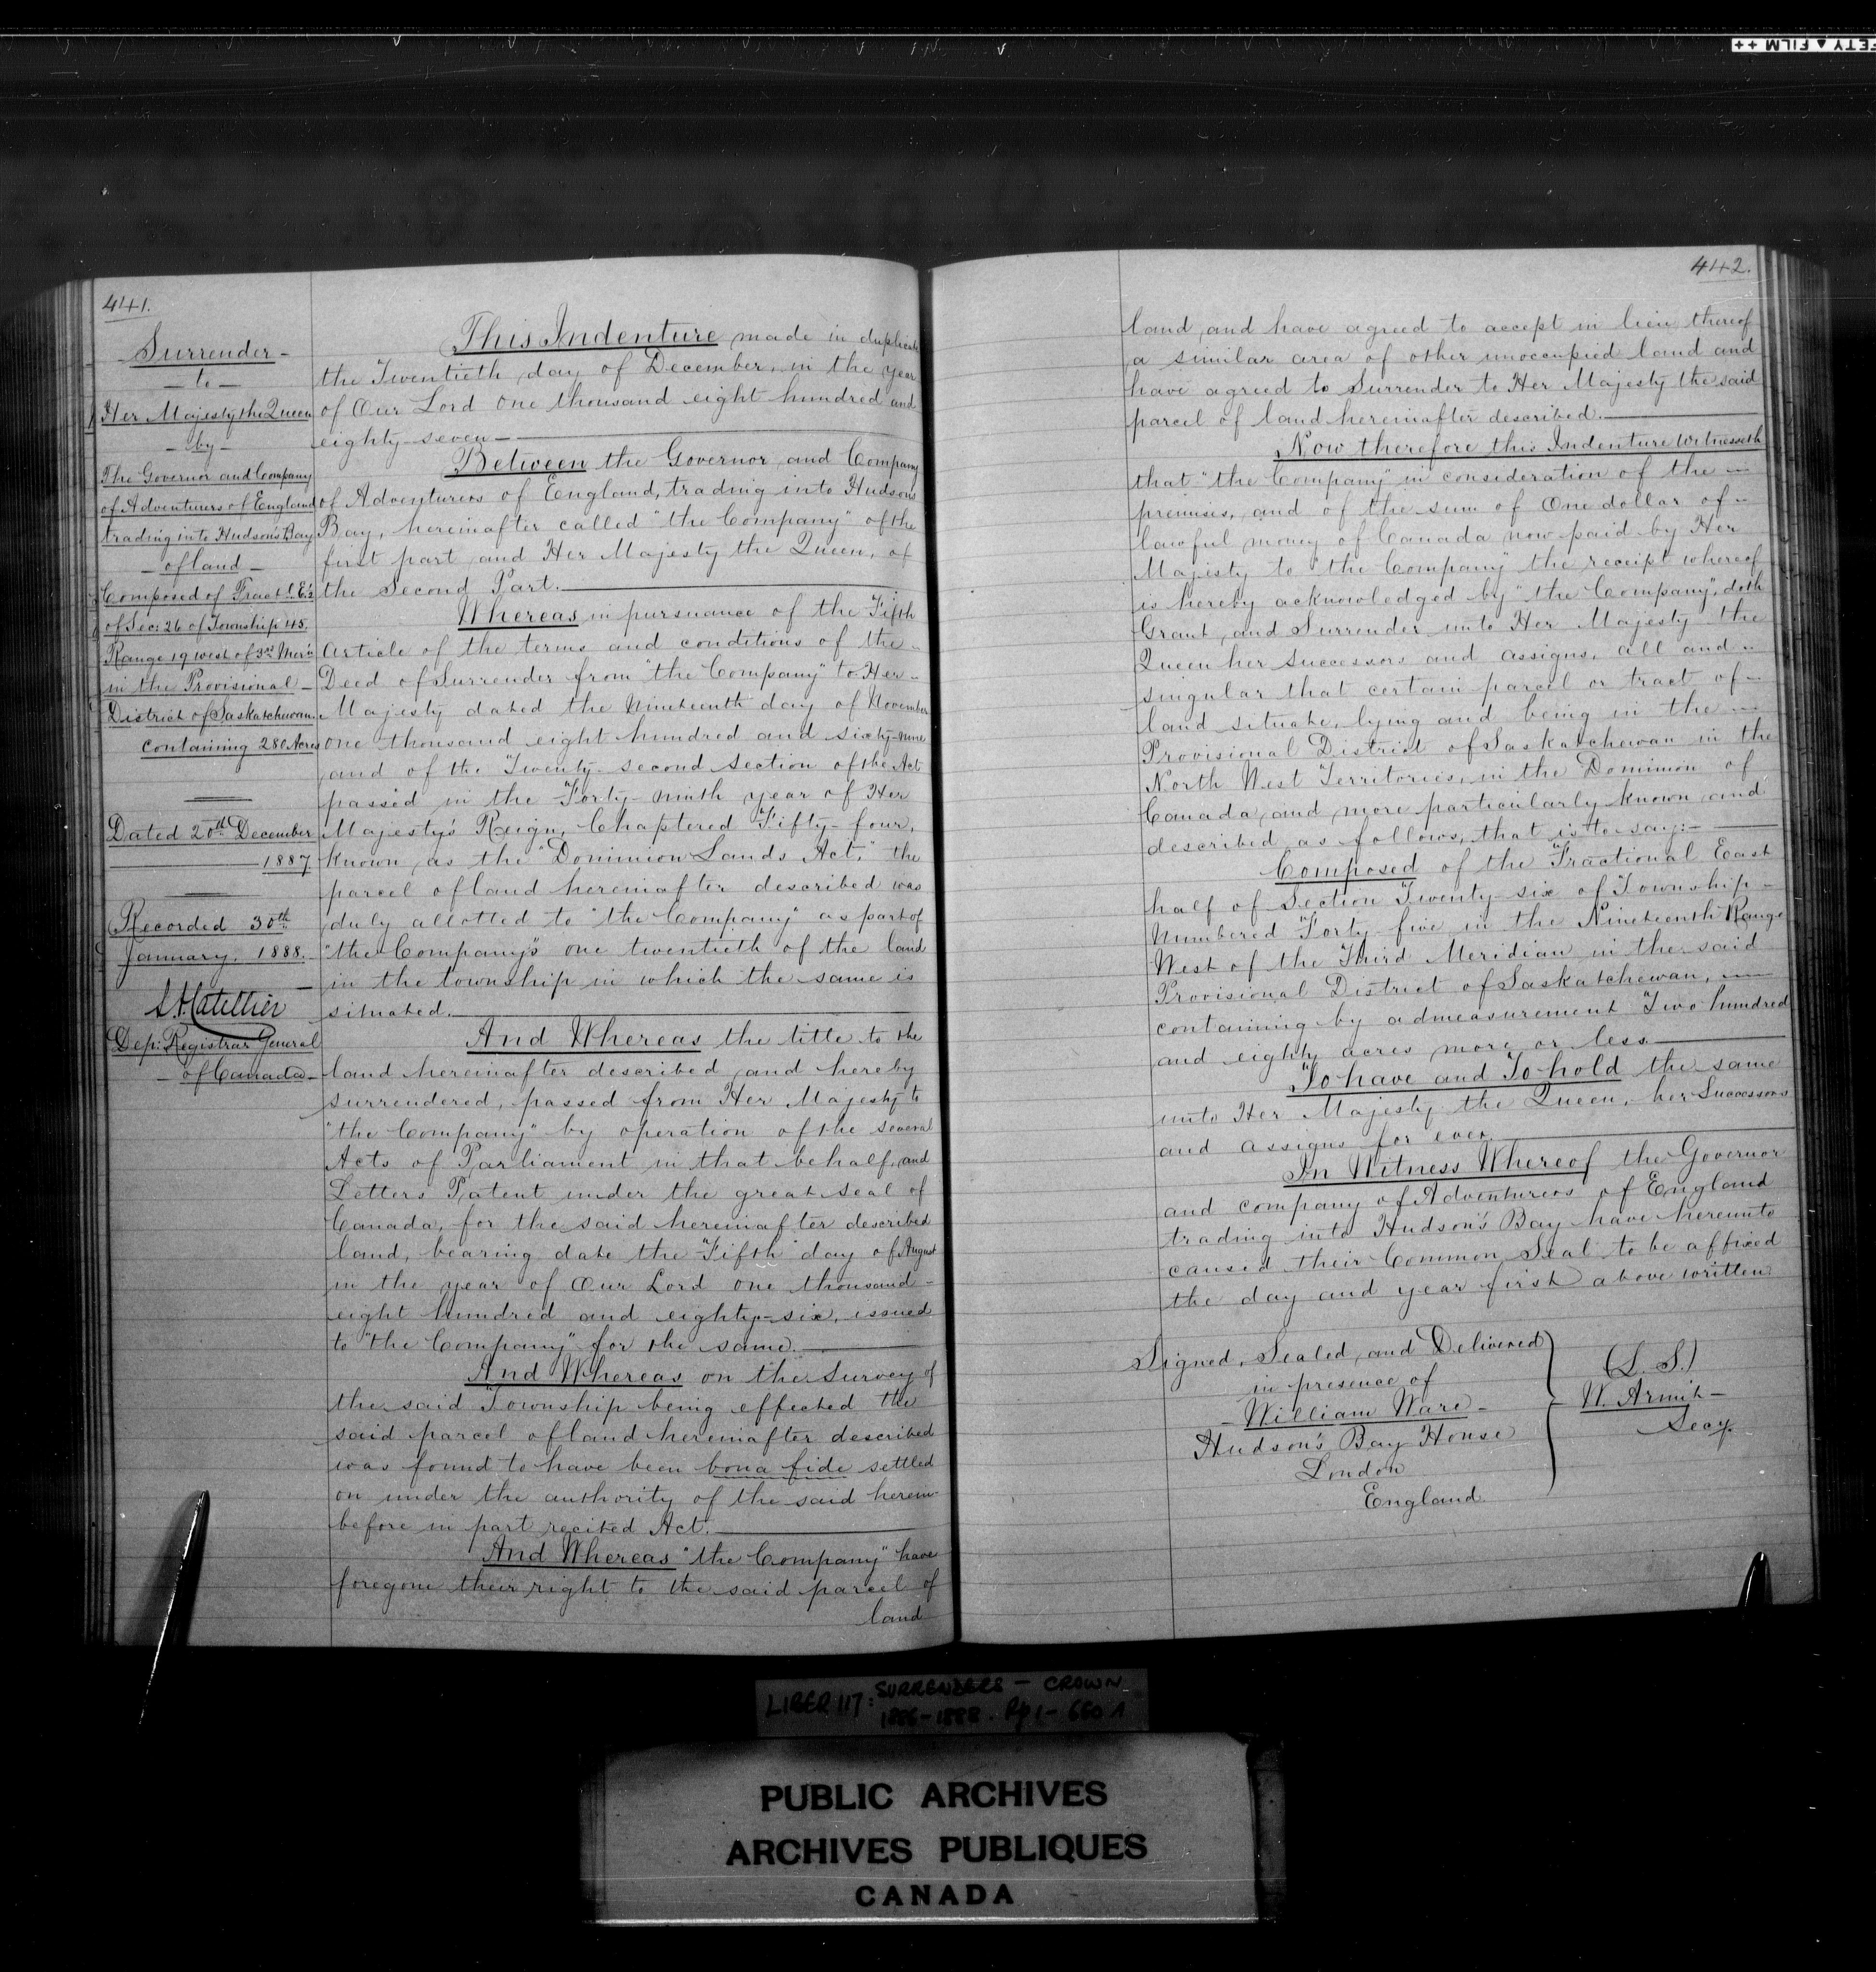 FETY ▲ FILM ++
441.
Surrender -
- to -
Her Majesty the Queen
- by -
The Governor and Company
of Adventurers of England
trading into Hudson's Bay
- of land -
Composed of Fract.l E.½
of Sec: 26 of Township 45.
Range 19 west of 3rd Mer:n
in the Provisional -
District of Saskatchewan.
containing 280 Acres
Dated 20th December
1887
Recorded 30th
January, 1888.
Dep: Registrar General
- of Canada -
This Indenture made in duplicate
the Twentieth day of December, in the year
of Our Lord One thousand eight hundred and
eighty-seven -
Between the Governor and Company
of Adventurers of England, trading into Hudsons
Bay, hereinafter called "the Company" of the
first part and Her Majesty the Queen, of
the Second Part.
Whereas in pursuance of the Fifth
Article of the terms and conditions of the -
Deed of Surrender from "the Company" to Her -
Majesty dated the Nineteenth day of November
one thousand eight hundred and sixty-nine
and of the Twenty-second section of the Act
passed in the Forty-ninth year of Her
Majesty's Reign, Chaptered Fifty-four,
known as the "Dominion Lands Act," the
parcel of land hereinafter described was
duly allotted to "the Company" as part of
"the Company's" one twentieth of the land
in the township in which the same is
situated.
And Whereas the title to the
land hereinafter described and hereby
surrendered, passed from Her Majesty to
"the Company" by operation of the several
Acts of Parliament in that behalf, and
Letters Patent under the great seal of
Canada, for the said hereinafter described
land, bearing date the Fifth day of August
in the year of Our Lord one thousand -
eight hundred and eighty-six, issued
to "the Company" for the same.
And Whereas on the Survey of
the said Township being effected the
said parcel of land hereinafter described
was found to have been bona fide settled
on under the authority of the said herein-
before in part recited Act.
And Whereas "the Company" have
foregone their right to the said parcel of
land
442.
land and have agreed to accept in lieu thereof
a similar area of other unoccupied land and
have agreed to Surrender to Her Majesty the said
parcel of land hereinafter described.
Now therefore this Indenture Witnesseth
that "the Company" in consideration of the -
premises, and of the sum of One dollar of -
lawful money of Canada now paid by Her
Majesty to "the Company" the receipt whereof
is hereby acknowledged by "the Company", doth
Grant and Surrender unto Her Majesty the
Queen her successors and assigns, all and -
singular that certain parcel or tract of -
land situate, lying and being in the -
Provisional District of Saskatchewan in the
North West Territories, in the Dominion of
Canada, and more particularly known and
described as follows, that is to say:-
Composed of the Fractional East
half of Section Twenty-six of Township -
Numbered Forty-five in the Nineteenth Range
West of the Third Meridian in the said
Provisional District of Saskatchewan, -
containing by admeasurement Two hundred
and eighty acres more or less
To have and To hold the same
unto Her Majesty the Queen, her Successors
and assigns for ever.
In Witness Whereof the Governor
and company of Adventurers of England
trading into Hudson's Bay have hereunto
caused their Common Seal to be affixed
the day and year first above written
Signed, Sealed, and Delivered
in presence of
- William Ware -
Hudson's Bay House
London
England
(L. S.)
W. Armit -
Secy
LIBER 117: SURRENDERS - CROWN
1886-1888. Pp 1-660A
PUBLIC ARCHIVES
ARCHIVES PUBLIQUES
CANADA